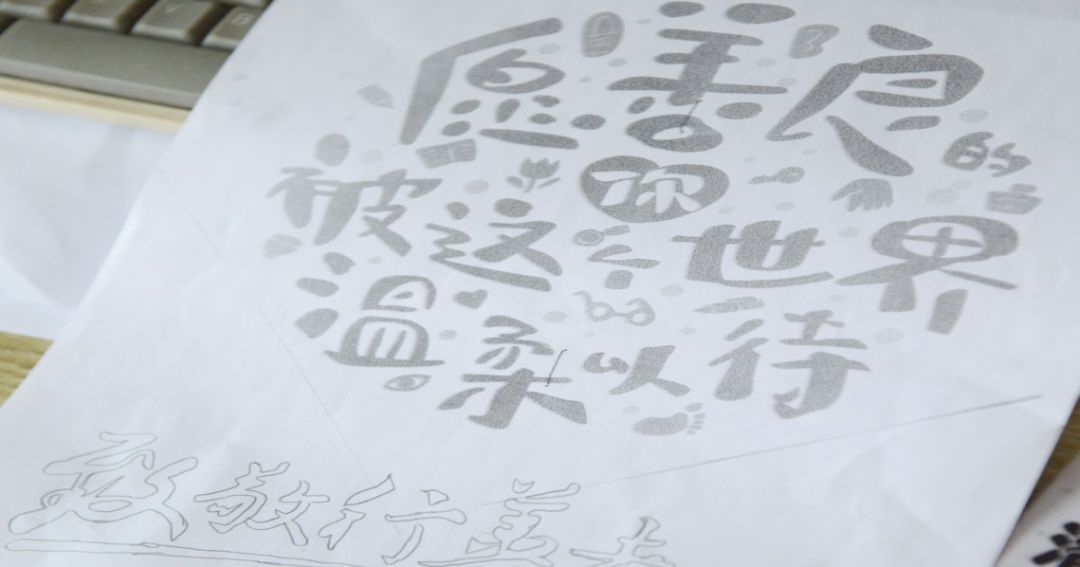 愿善良的
被这你世界
温柔以待
致敬行善者